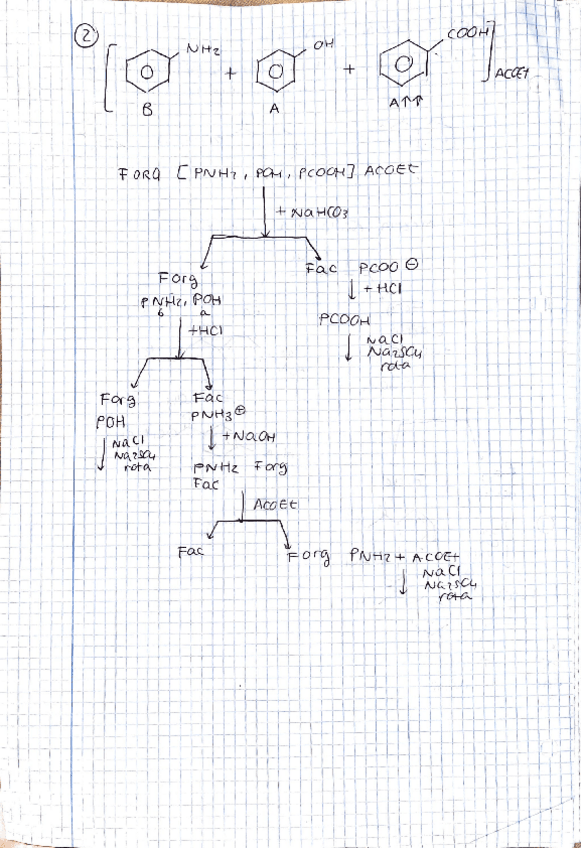 ②
NH2 + OH + COOH
ACOET
B A A↑↑
FORG [PNH2, POH, PCOOH] ACOEt
+ NaHCO3
Forg Fac PCOO ⊖
PNH2, POH ↓ + HCl
b a
+HCl PCOOH
↓ NaCl
Na2SO4
rota
Forg Fac
POH PNH3⊕
↓ NaCl ↓ +NaOH
Na2SO4
rota PNH2 Forg
Fac
ACOEt
Fac Forg PNH2 + ACOEt
↓ NaCl
Na2SO4
rota